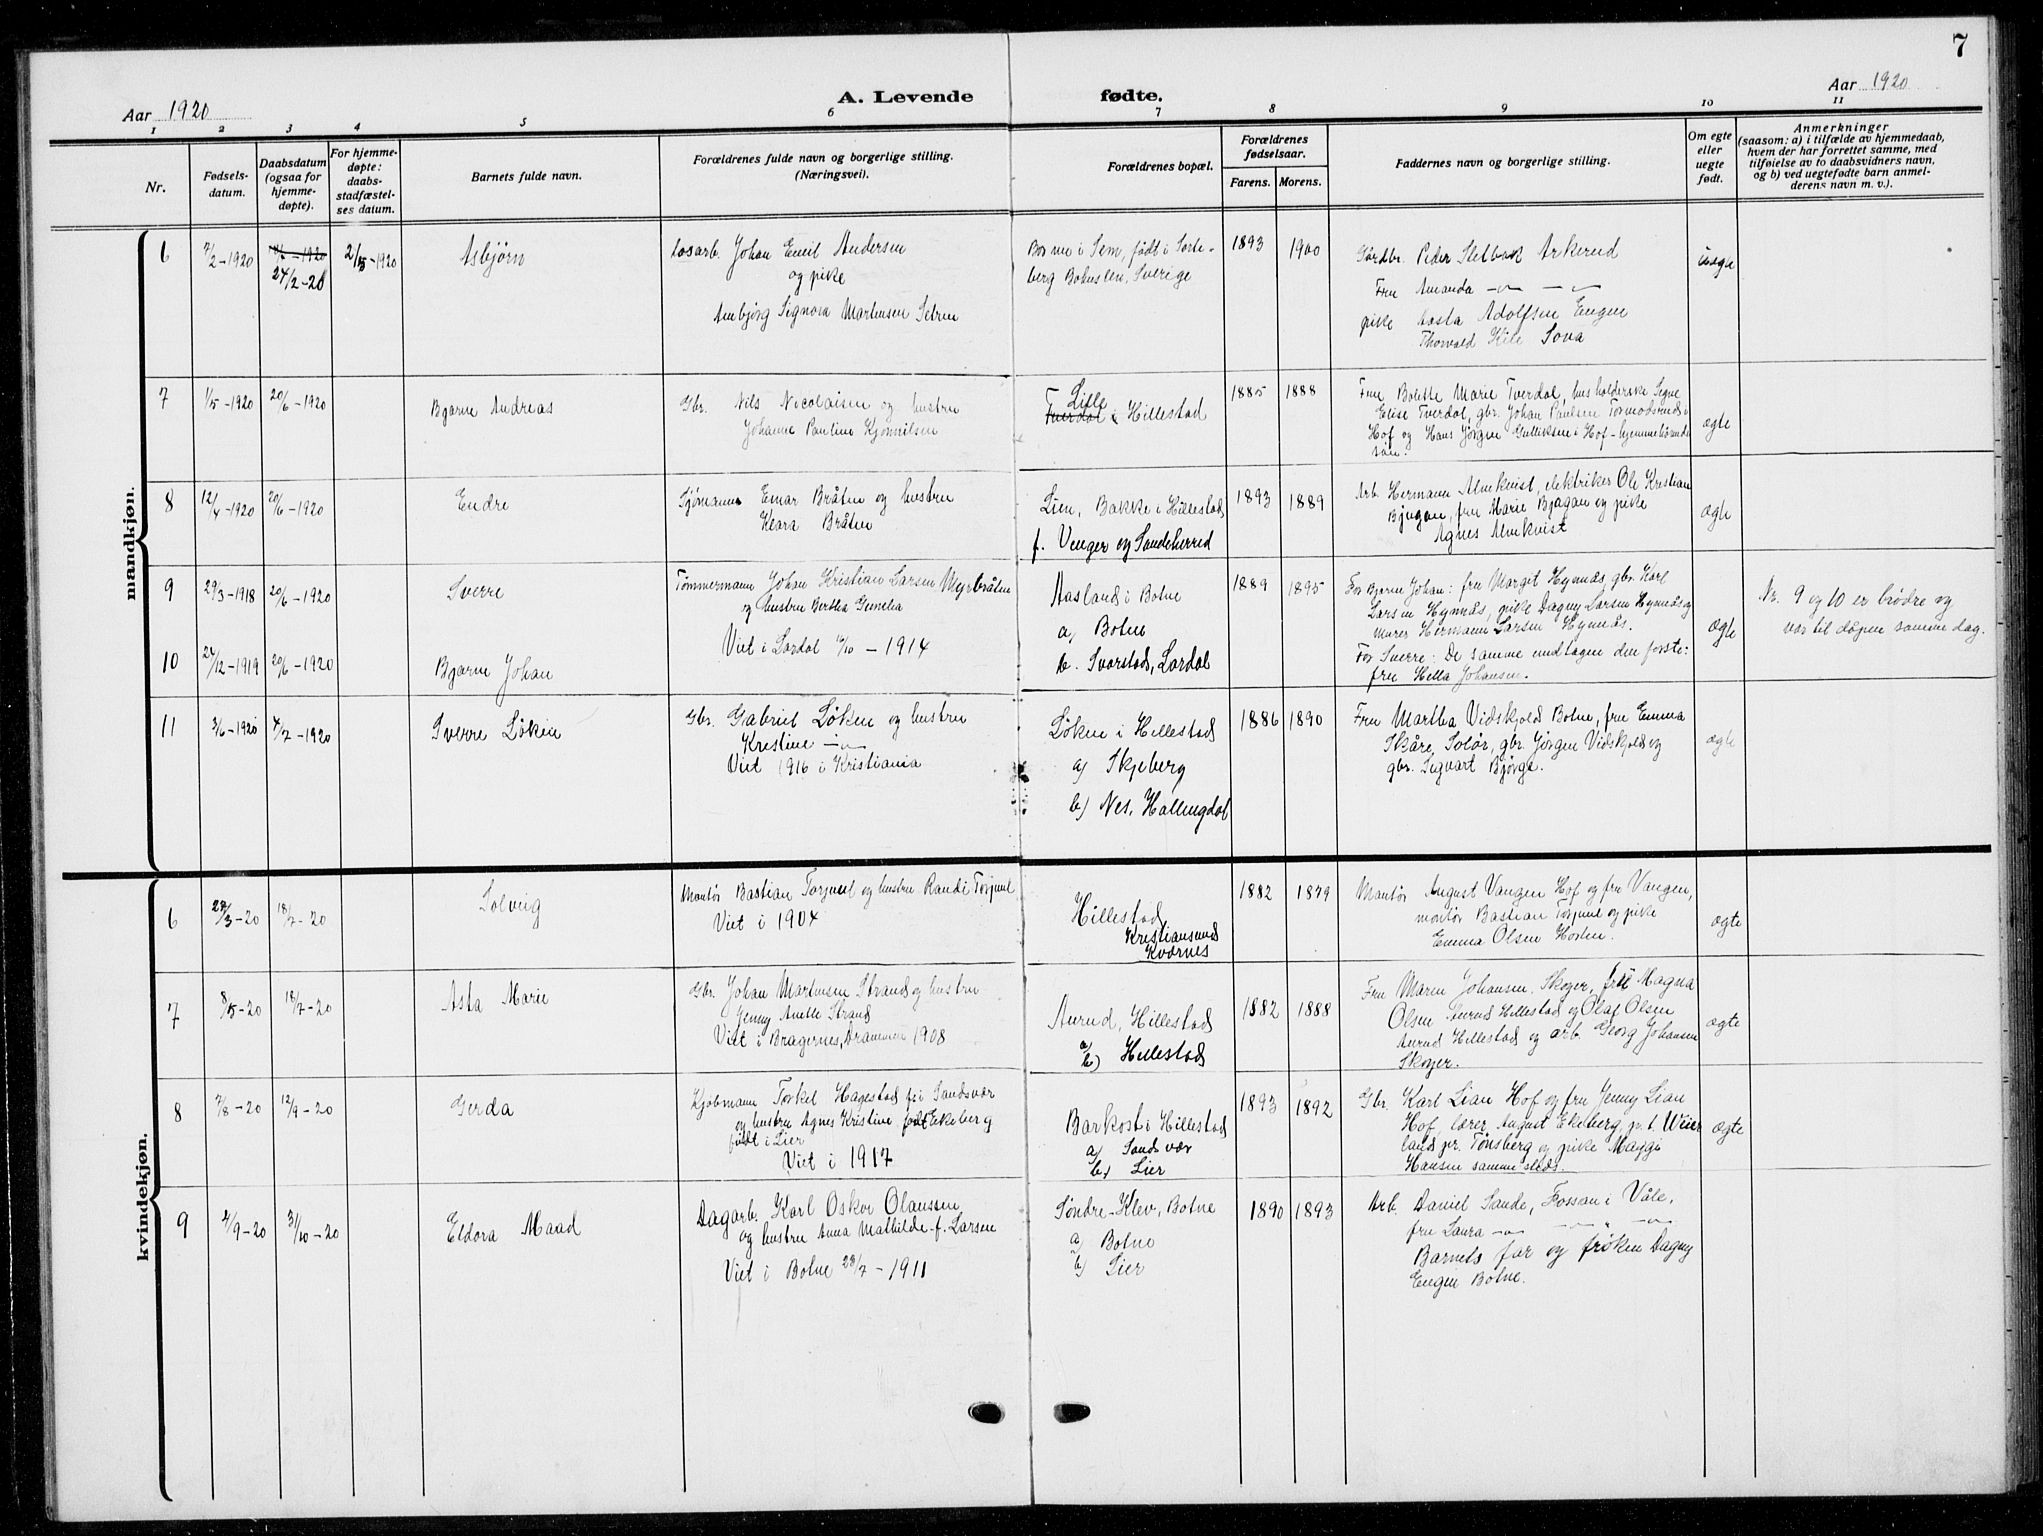 7
Aar 1920
A. Levende fødte.
Aar 1920
1 2 3 4 5 6 7 8 9 10 11
Nr.
Fødsels-
datum.
Daabsdatum
(ogsaa for
hjemme-
døpte).
For hjemme-
døpte:
daabs-
stadfæstel-
ses datum.
Barnets fulde navn.
Forældrenes fulde navn og borgerlige stilling.
(Næringsvei).
Forældrenes bopæl.
Forældrenes
fødselsaar.
Farens. Morens.
Faddernes navn og borgerlige stilling.
Om egte
eller
uegte
født.
Anmerkninger
(saasom: a) i tilfælde av hjemmedaab,
hvem der har forrettet samme, med
tilføielse av to daabsvidners navn,
og b) ved uegtefødte barn anmel-
derens navn m. v.).
mandkjøn.
6
7/2-1920
24/2-20
2/5-1920
Asbjørn
Losarb. Johan Emil Andersen
og pike
Signora Martinsen
i Sem, født i
Bohuslen, Sverige
1893
1900
Gårdbr. Peder Arkerud
Fru Amanda -"- -"-
pike Adolfsen Engen
Thorvald Sova
uegte
7
1/5-1920
20/6-1920
Bjarne Andreas
Gbr. Nils Nicolaisen og hustru
Johanne Pauline
Lille
Tverdal i Hillestad
1885
1888
Frue Bolette Marie Tverdal, husholderske Signe
Elise Tverdal, gbr. Johan Paulsen Tormodsrud i
Hof og Hans Jørgen Gulliksen i Hof - hjemmehørende
søn.
ægte
8
12/4-1920
20/6-1920
Endre
Sjømann Einar Bråten og hustru
Klara Bråten
Lien, Bakke i Hillestad
f. Venger og Sandeherred
1893
1889
Arb. Hermann Almkvist, elektriker Ole Kristian
Bjugan, fru Marie Bjugan og pike
Agnes Almkvist
ægte
9
29/3-1918
20/6-1920
Sverre
Tømmermann Johan Kristian Larsen Myrbråten
og hustru Bertha
Viet i Lardal /10 - 1914
Aasland i Botne
a) Botne
b. Svarstad, Lardal
1889
1895
For Bjarne Johan: fru Margit Hynnås, gbr. Karl
Larsen Hynnås, pike Dagny Larsen Hynnås og
murer Hermann Larsen Hynnås.
For Sverre: De samme undtagen den første:
fru Hilla Johansen.
ægte
Nr. 9 og 10 er brødre og
var til dåpen samme dag.
10
24/12-1919
20/6-1920
Bjarne Johan
11
3/6-1920
4/7-1920
Sverre Løken
Gbr. Gabriel Løken og hustru
Kristine -"-
Viet 1916 i Kristiania
Løken i Hillestad
a) Skjeberg
b) Nes, Hallingdal
1886
1890
Fru Martha Vidskjold Botne, fru Emma
Skåre, Solør, gbr. Jørgen Vidskjold og
gbr. Sigvart Bjørge.
ægte
kvindekjøn.
6
28/3-20
18/7-20
Solveig
Montør Bastian Torjul og hustru Randi Torjul
Viet i 1904
Hillestad
Kristiansund
Kvernes
1882
1879
Montør August Vangen Hof og fru Vangen,
montør Bastian Torjul og pike
Emma Olsen Horten.
ægte
7
8/5-20
18/7-20
Asta Marie
Gbr. Johan Martinsen Strand og hustru
Jenny Anette Strand
Viet i Bragernes, Drammen 1908
Aurud, Hillestad
a/
b) Hillestad
1882
1888
Fru Maren Johansen, Skoger, fru Magna
Olsen Aurud Hillestad og Olaf Olsen
Aurud Hillestad og arb. Georg Johansen
Skoger.
ægte
8
7/8-20
12/9-20
Gerda
Kjøbmann Torkel Hagestad f. i Sandsvær
og hustru Agnes Kristine født Ekeberg
født i Lier
Viet i 1917
Barkost i Hillestad
a) Sandsvær
b) Lier
1893
1892
Gbr. Karl Lian Hof og fru Jenny Lian
Hof, lærer August Ekeberg, p. t. Weier
land pr. Tønsberg og pike Maggi
Hansen samme sted.
ægte
9
4/9-20
31/10-20
Eldora Maad
Dagarb. Karl Oskar Olaussen
og hustru Anna Mathilde f. Larsen
Viet i Botne 23/7 - 1911
Søndre-Klev, Botne
a) Botne
b) Lier
1890
1893
Arb. Daniel Sande, Fossan i Våle,
fru Laura -"- -"- " -"-
Barnets far og frøken Dagny
Engen Botne.